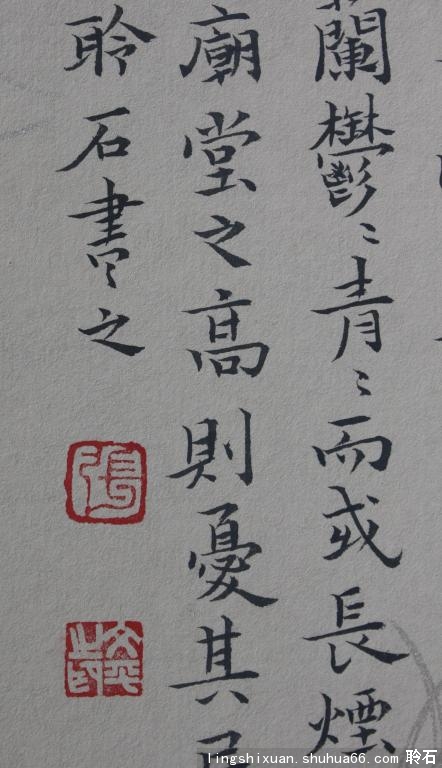 蘭鬱〻青〻而或長煙
廟堂之高則憂其民
聆石書之
張
lingshixuan.shuhua66.com 聆石